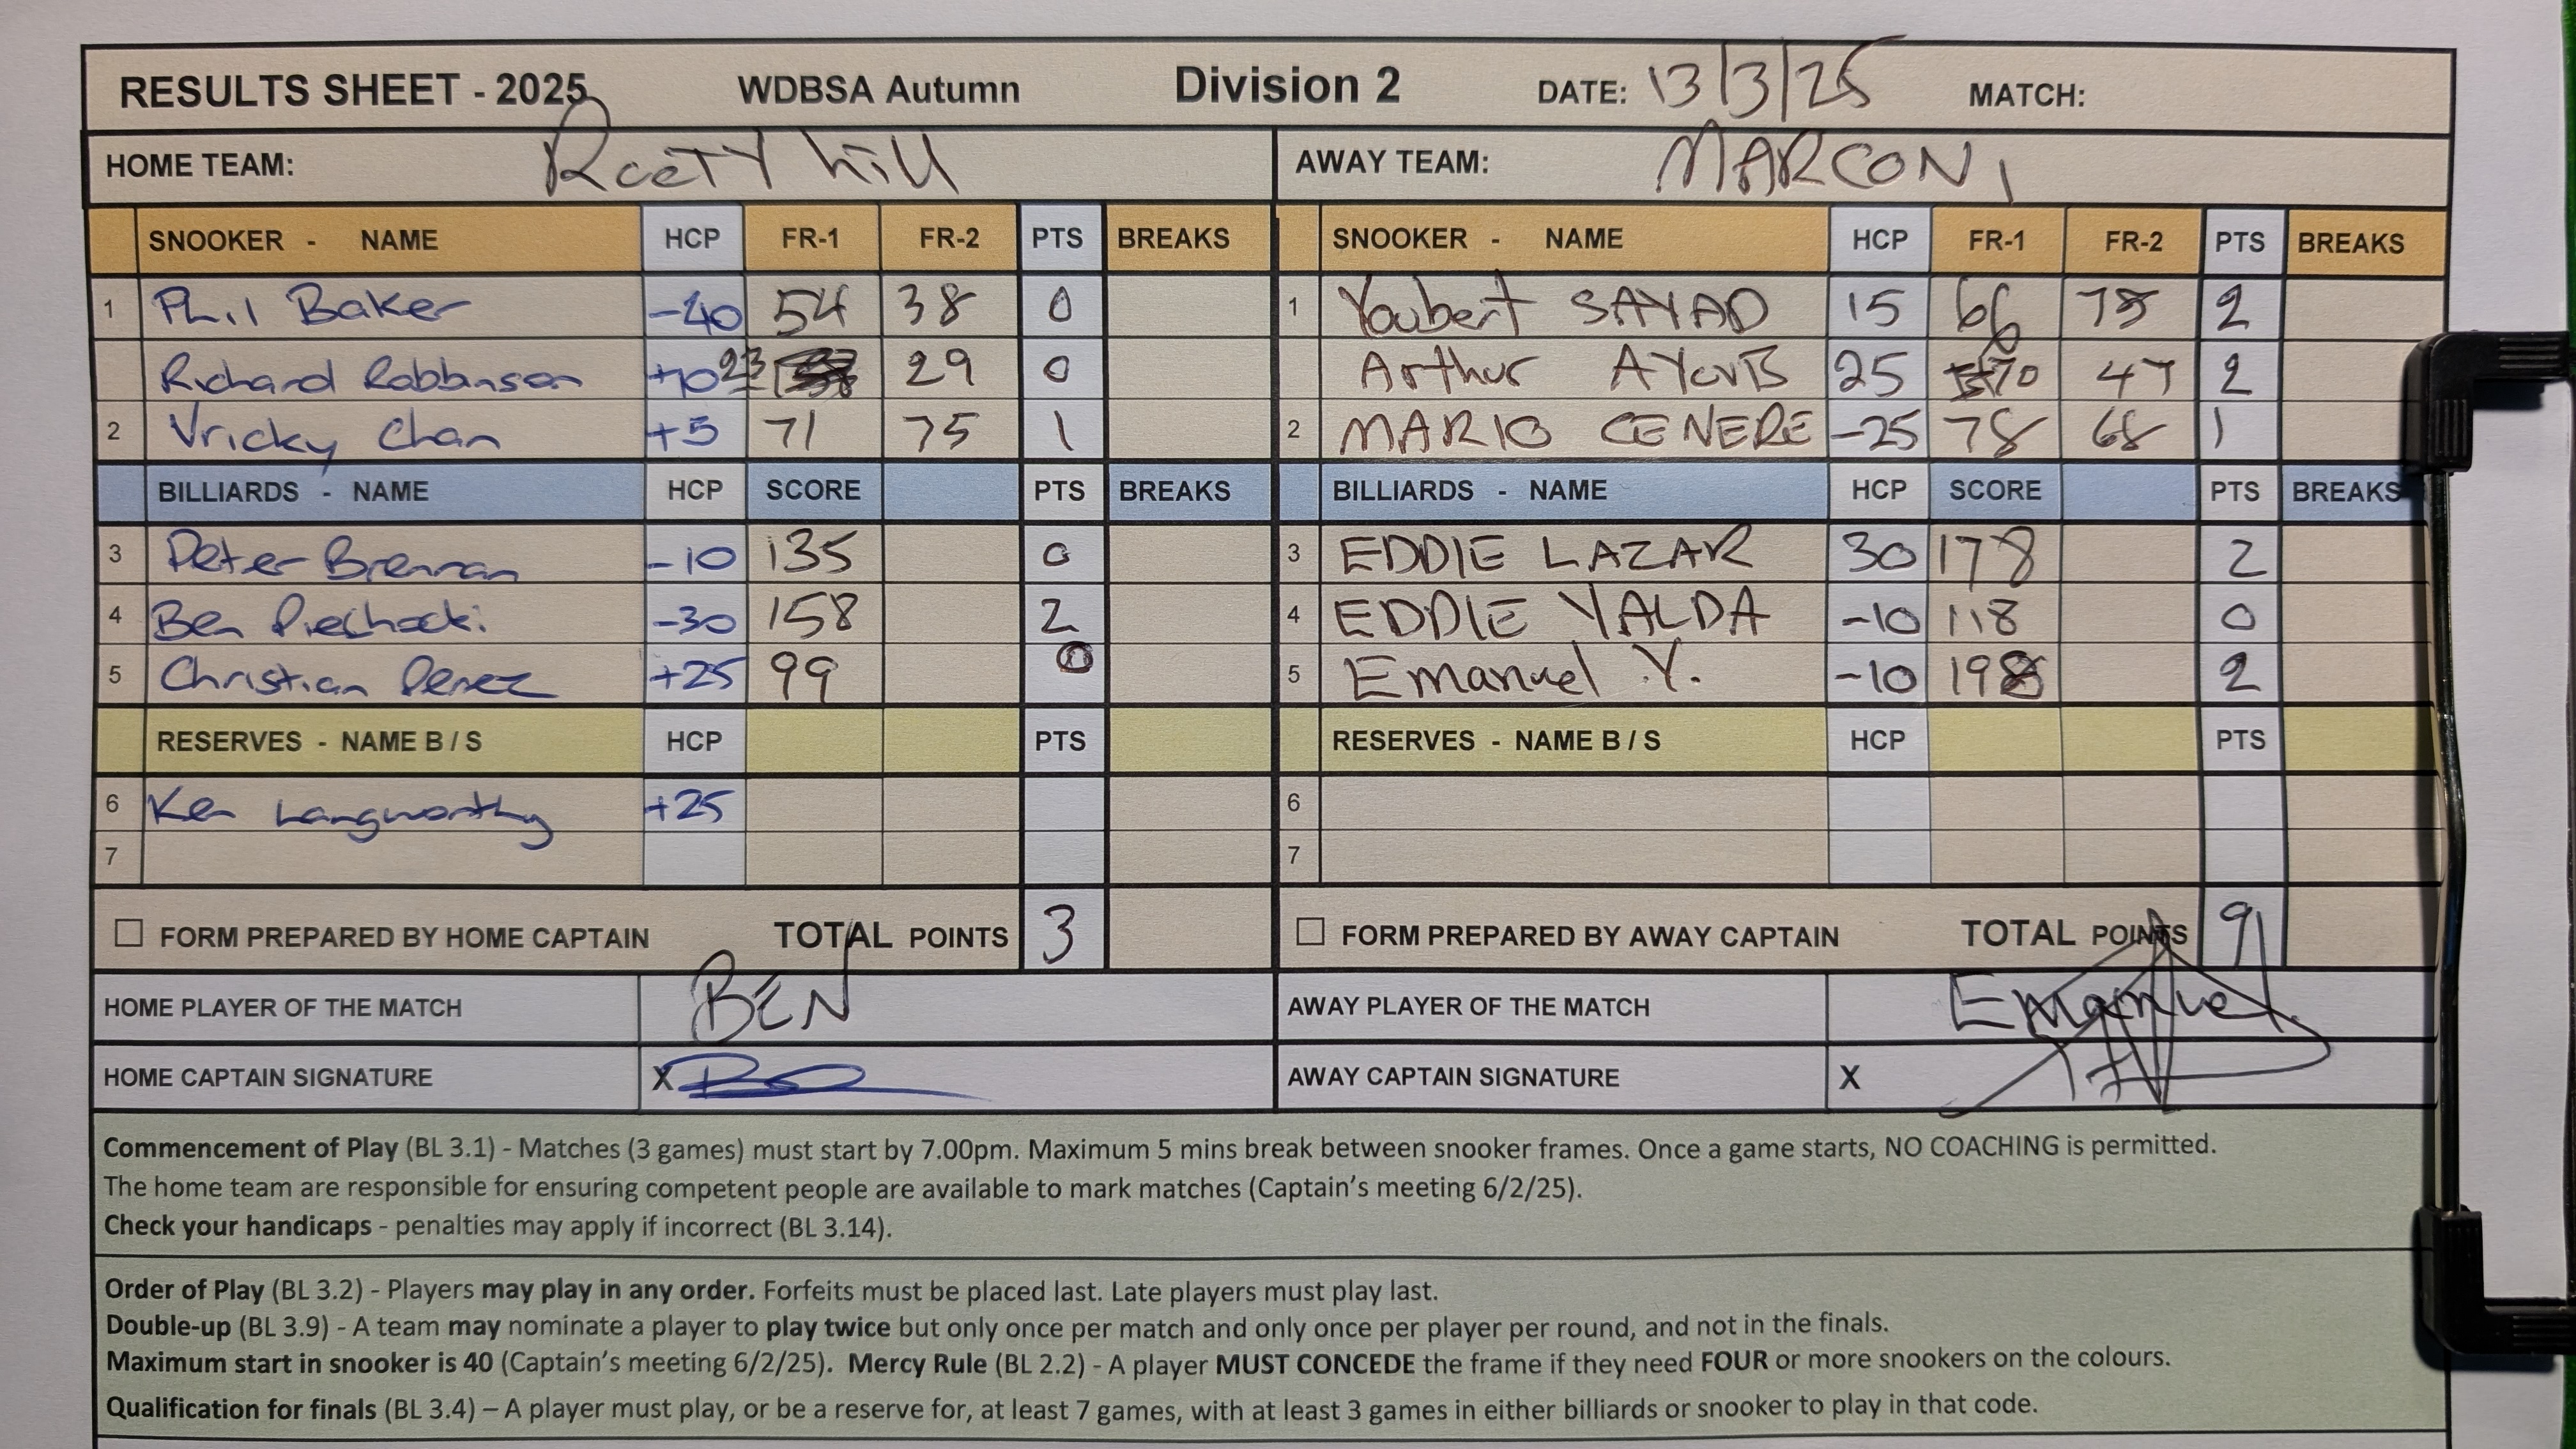 RESULTS SHEET - 2025 WDBSA Autumn Division 2 DATE: 13/3/25 MATCH:
HOME TEAM: Rooty hill AWAY TEAM: MARCONI
SNOOKER - NAME HCP FR-1 FR-2 PTS BREAKS SNOOKER - NAME HCP FR-1 FR-2 PTS BREAKS
1 Phil Baker -40 54 38 0 1 Youbert SAYAD 15 66 78 2
Richard Robbinson +10 23 29 0 Arthur AYOUB 25 70 47 2
2 Vricky Chan +5 71 75 1 2 MARIO CENERE -25 78 68 1
BILLIARDS - NAME HCP SCORE PTS BREAKS BILLIARDS - NAME HCP SCORE PTS BREAKS
3 Peter Brennan -10 135 0 3 EDDIE LAZAR 30 178 2
4 Ben Piechocki -30 158 2 4 EDDIE YALDA -10 118 0
5 Christian Perez +25 99 0 5 Emanuel Y. -10 198 2
RESERVES - NAME B / S HCP PTS RESERVES - NAME B / S HCP PTS
6 Ken Langworthy +25 6
7 7
FORM PREPARED BY HOME CAPTAIN TOTAL POINTS 3 FORM PREPARED BY AWAY CAPTAIN TOTAL POINTS 9
HOME PLAYER OF THE MATCH BEN AWAY PLAYER OF THE MATCH Emanuel.
HOME CAPTAIN SIGNATURE X AWAY CAPTAIN SIGNATURE X
Commencement of Play (BL 3.1) - Matches (3 games) must start by 7.00pm. Maximum 5 mins break between snooker frames. Once a game starts, NO COACHING is permitted.
The home team are responsible for ensuring competent people are available to mark matches (Captain's meeting 6/2/25).
Check your handicaps - penalties may apply if incorrect (BL 3.14).
Order of Play (BL 3.2) - Players may play in any order. Forfeits must be placed last. Late players must play last.
Double-up (BL 3.9) - A team may nominate a player to play twice but only once per match and only once per player per round, and not in the finals.
Maximum start in snooker is 40 (Captain's meeting 6/2/25). Mercy Rule (BL 2.2) - A player MUST CONCEDE the frame if they need FOUR or more snookers on the colours.
Qualification for finals (BL 3.4) – A player must play, or be a reserve for, at least 7 games, with at least 3 games in either billiards or snooker to play in that code.